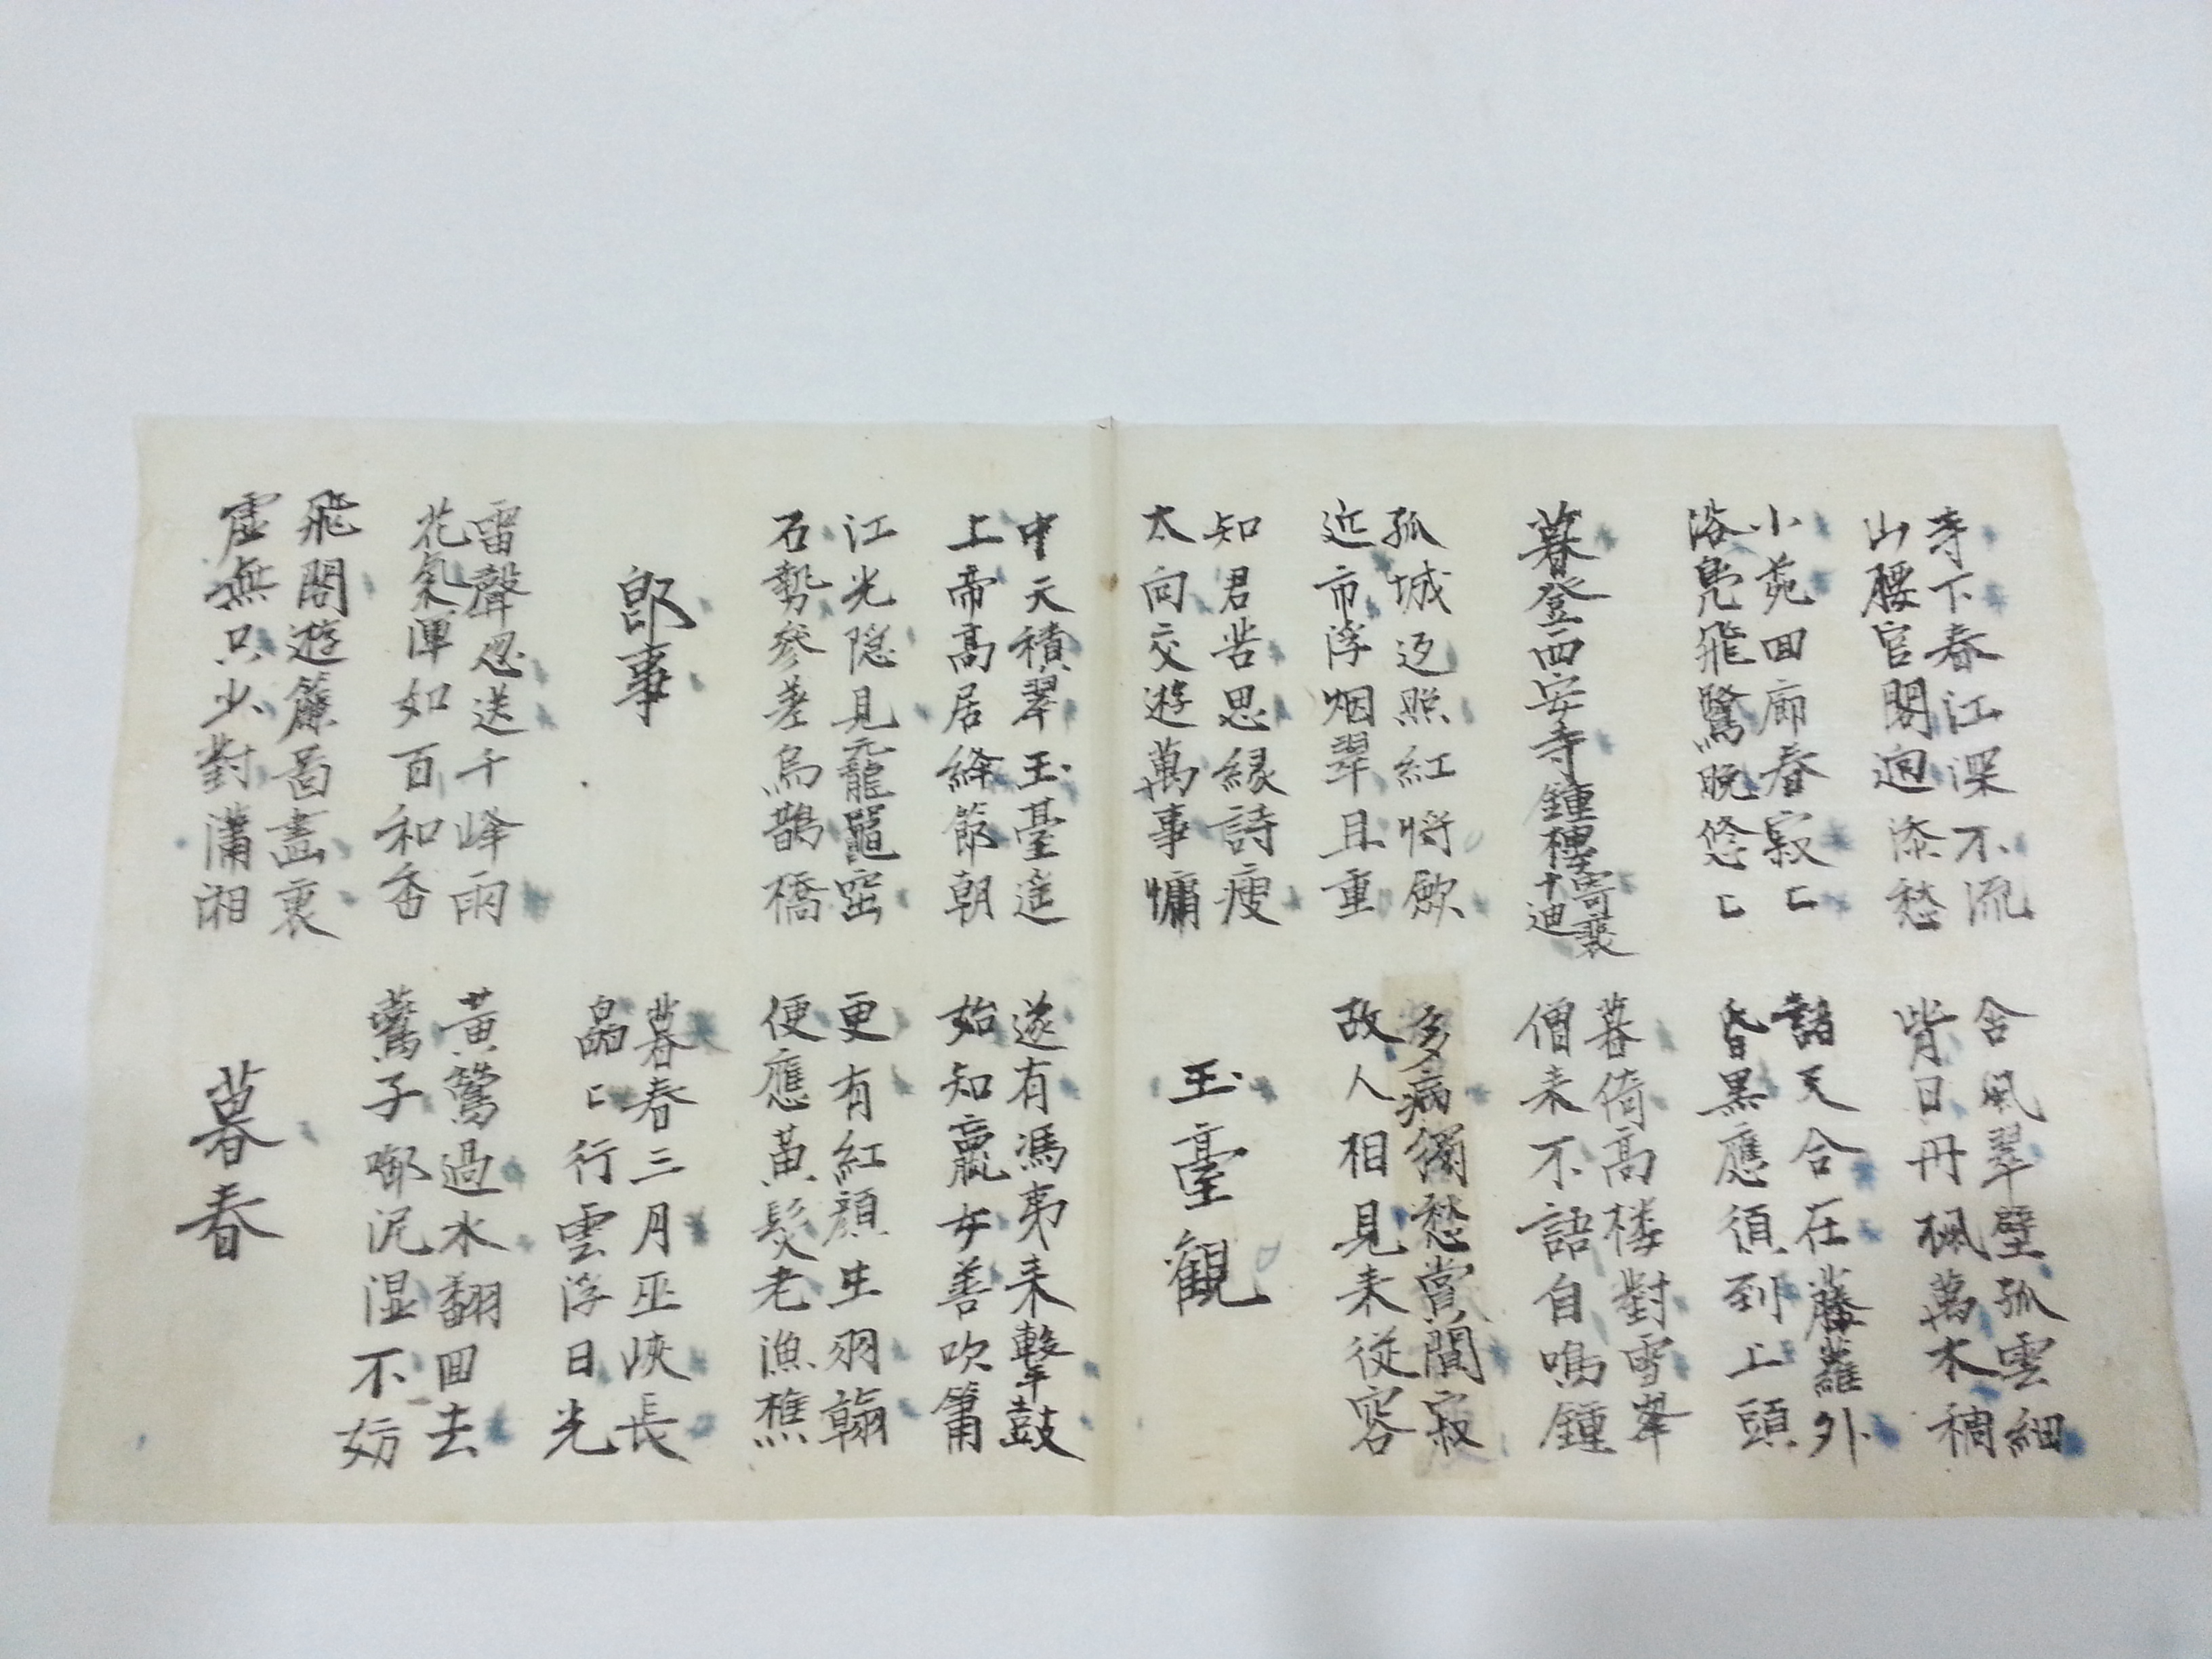 寺下春江深不流
山腰官閣迥添愁
含風翠壁孤雲細
背日丹楓萬木稠
小苑回廊春寂〻
浴鳧飛鷺晩悠〻
諸天合在藤蘿外
昏黒應須到上頭
暮登西安寺鍾樓寄裴十迪
暮倚高楼對雪峯
僧来不語自鳴鍾
孤城返照紅將斂
近市浮烟翠且重
多病獨愁賞閴寂
故人相見未從容
知君苦思縁詩瘦
太向交遊萬事慵
玉臺觀
中天積翠玉臺遥
上帝高居絳節朝
遂有馮夷来擊鼓
始知嬴女善吹簫
江光隠見黿鼉窟
石勢參差烏鵲橋
更有紅顔生羽翰
便應黄髮老漁樵
即事
暮春三月巫峽長
皛〻行雲浮日光
雷聲忽送千峰雨
花氣渾如百和香
黄鶯過水翻回去
鷰子啣泥湿不妨
飛閣遊簾啚畫裏
虚無只少對瀟湘
暮春